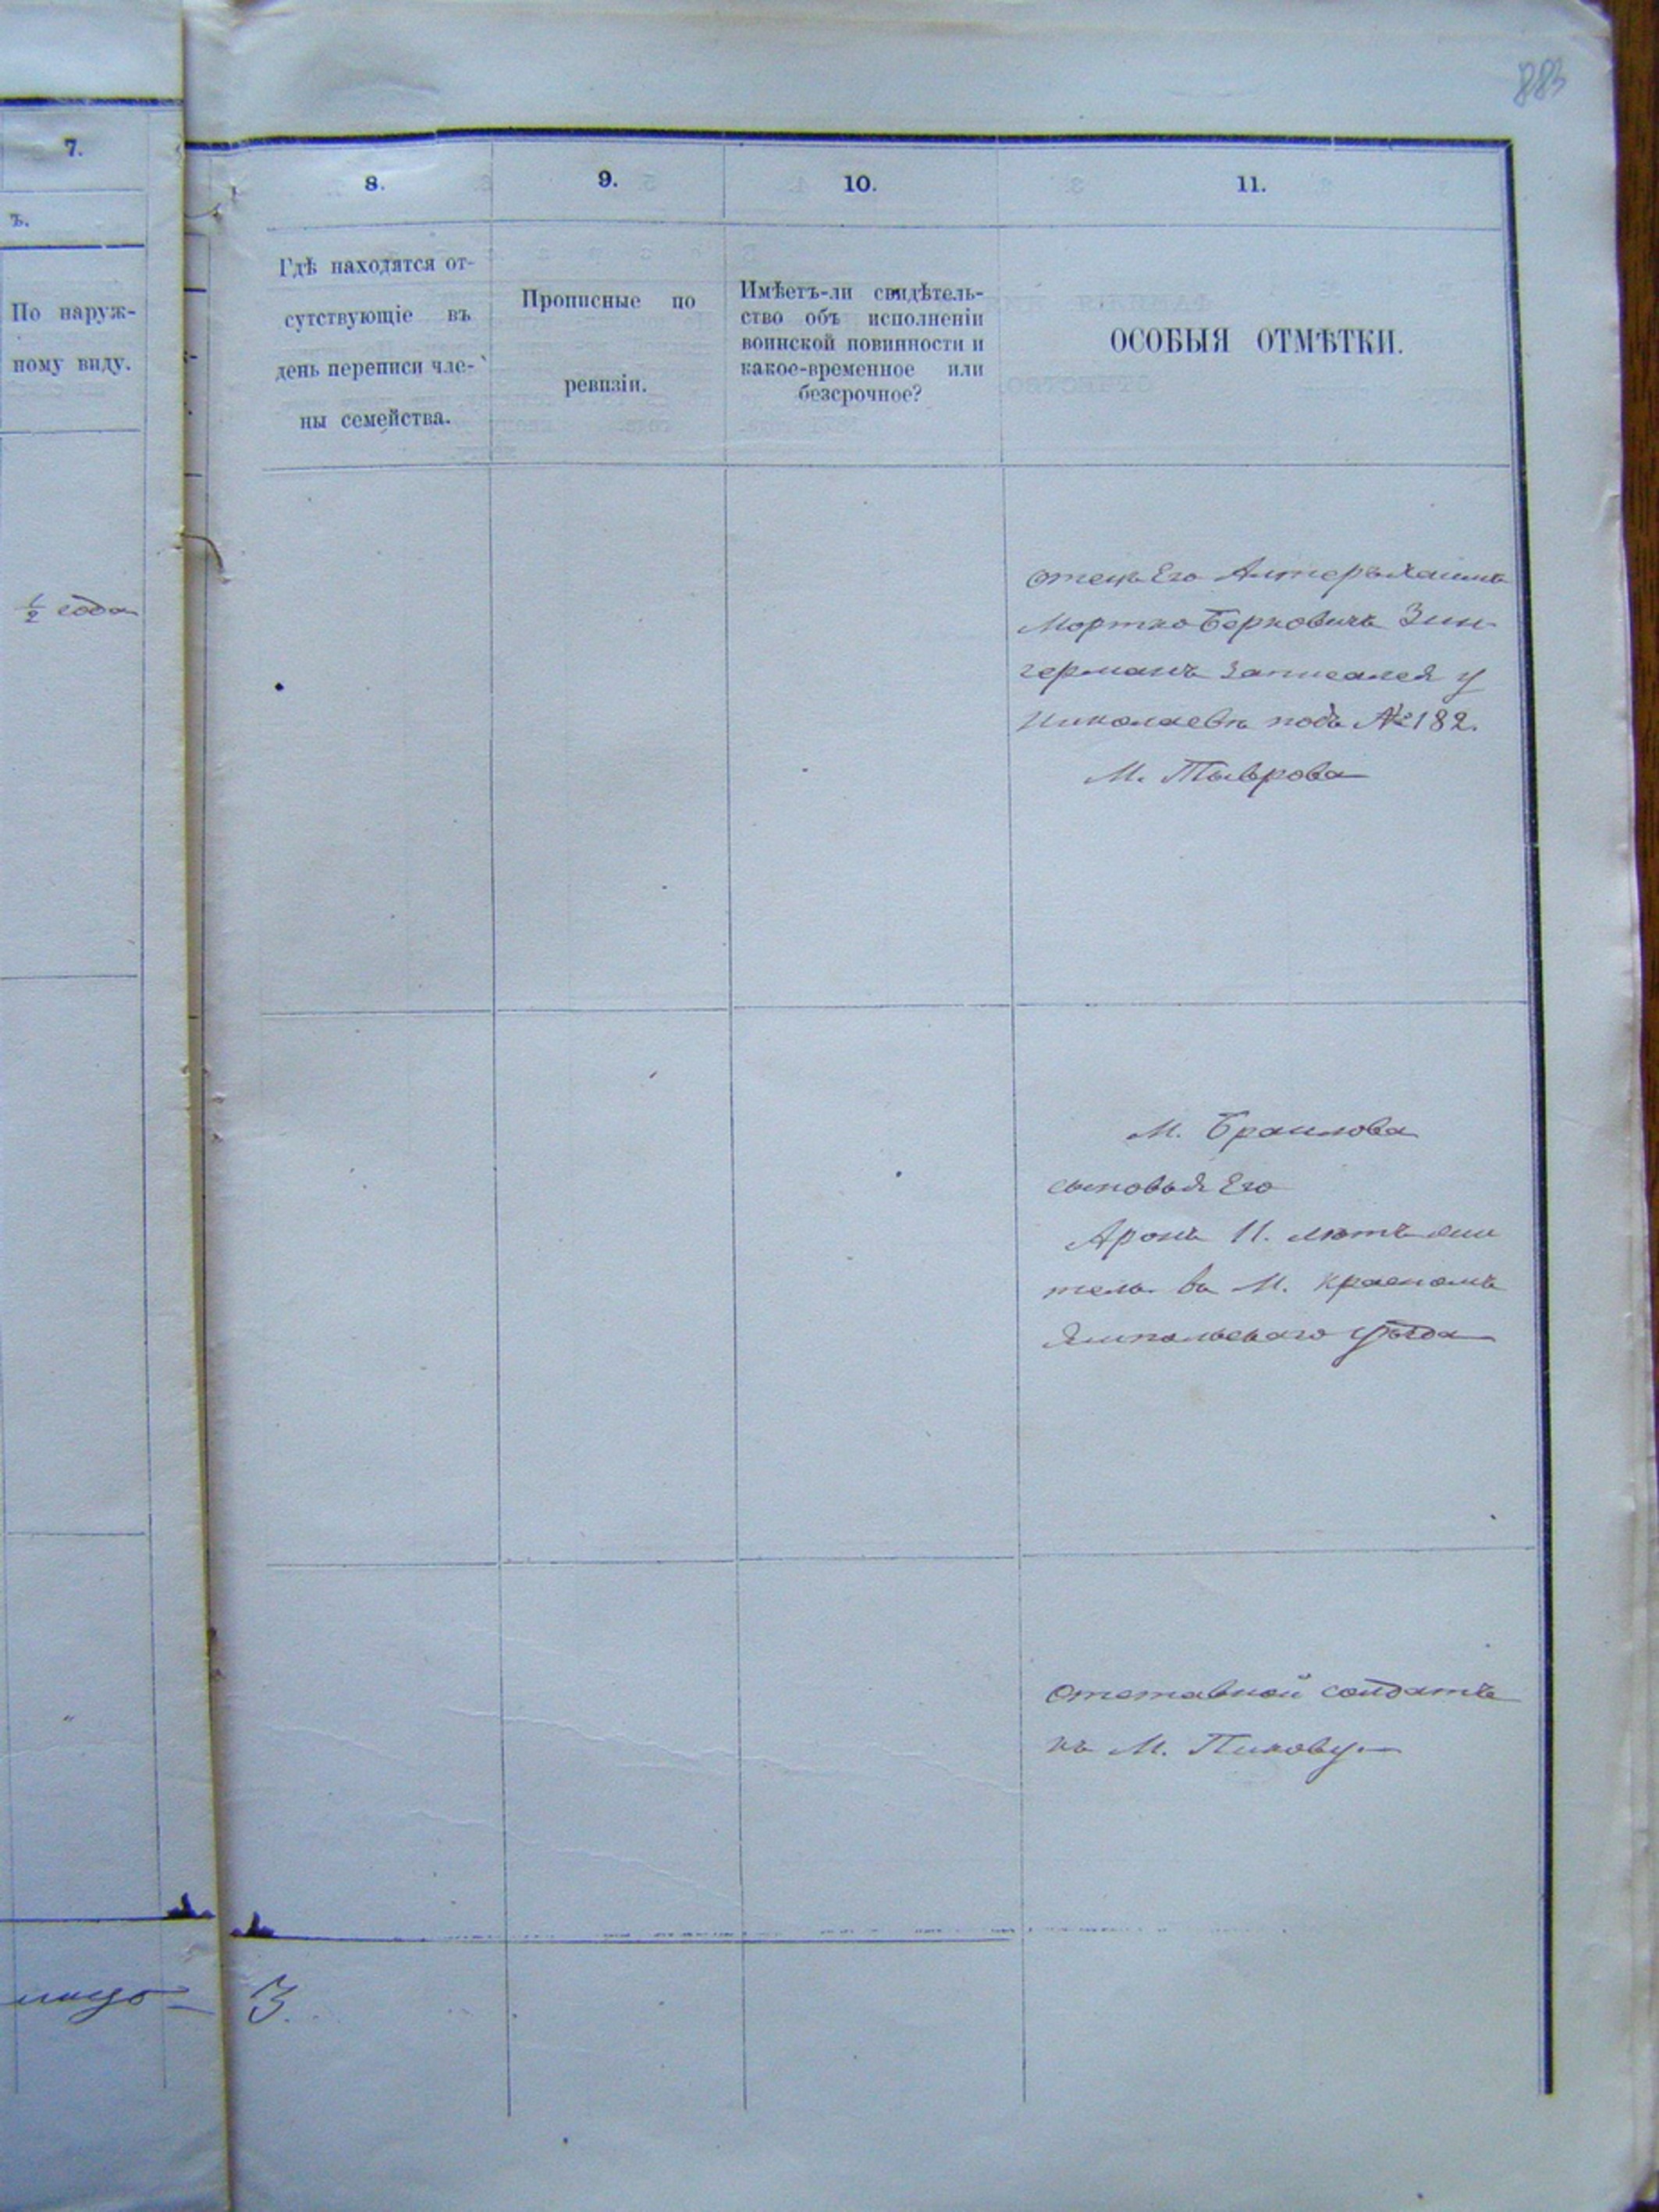 883
7.
ъ.
По наруж-
ному виду.
1/2 года
8.
9.
10.
11.
Гдѣ находятся от-
сутствующіе въ
день переписи чле-
ны семейства.
Прописные по
ревизіи.
Имѣетъ-ли свидѣтель-
ство объ исполненіи
воинской повинности и
какое-временное или
безсрочное?
ОСОБЫЯ ОТМѢТКИ.
отецъ Его Алтеръ Хаимъ
Мортко Берковичъ Зин-
германъ Записался у
Николаевѣ подъ №182.
М. Тыврова
М. Браилова
сыновья Его
Аронъ 11. лѣтъ жи
тель въ М. Красномъ
Ямпольскаго уѣзда
Отставной солдатъ
къ М. Пикову.
3.